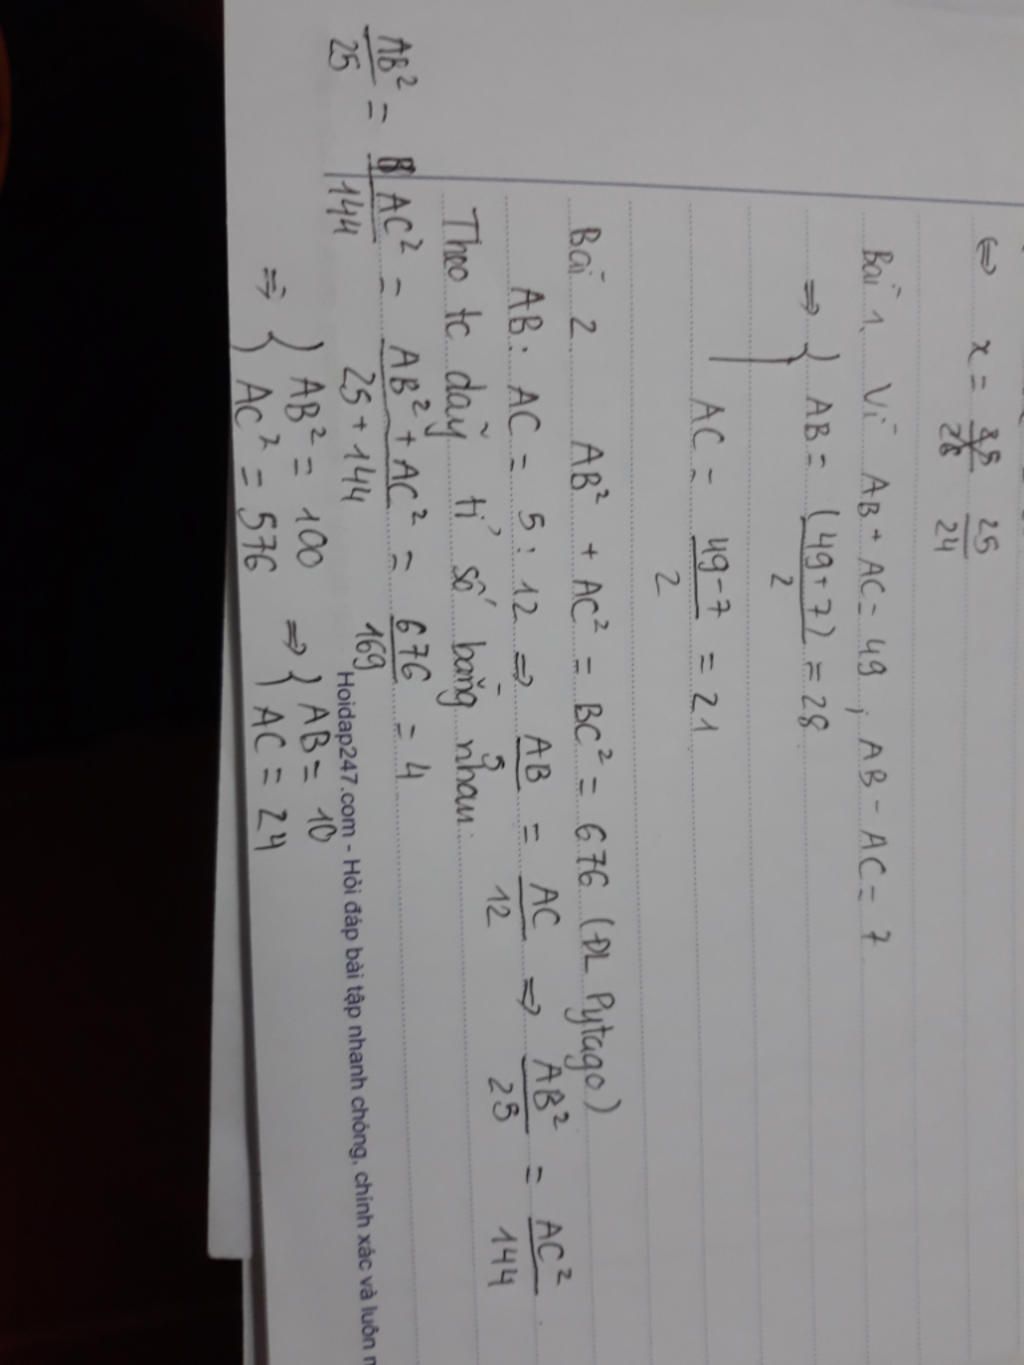 ⇔ x = 25/24
Bài 1, Vì AB + AC = 49 ; AB - AC = 7
⇒ { AB = (49+7)/2 = 28
AC = 49-7/2 = 21
Bài 2 AB² + AC² = BC² = 676 (ĐL Pytago)
AB : AC = 5 : 12 ⇒ AB/5 = AC/12 ⇒ AB²/25 = AC²/144
Theo tc dãy tỉ số bằng nhau:
AB²/25 = AC²/144 = AB²+AC²/25+144 = 676/169 = 4
⇒ { AB² = 100 ⇒ { AB = 10
AC² = 576 AC = 24
Hoidap247.com - Hỏi đáp bài tập nhanh chóng, chính xác và luôn